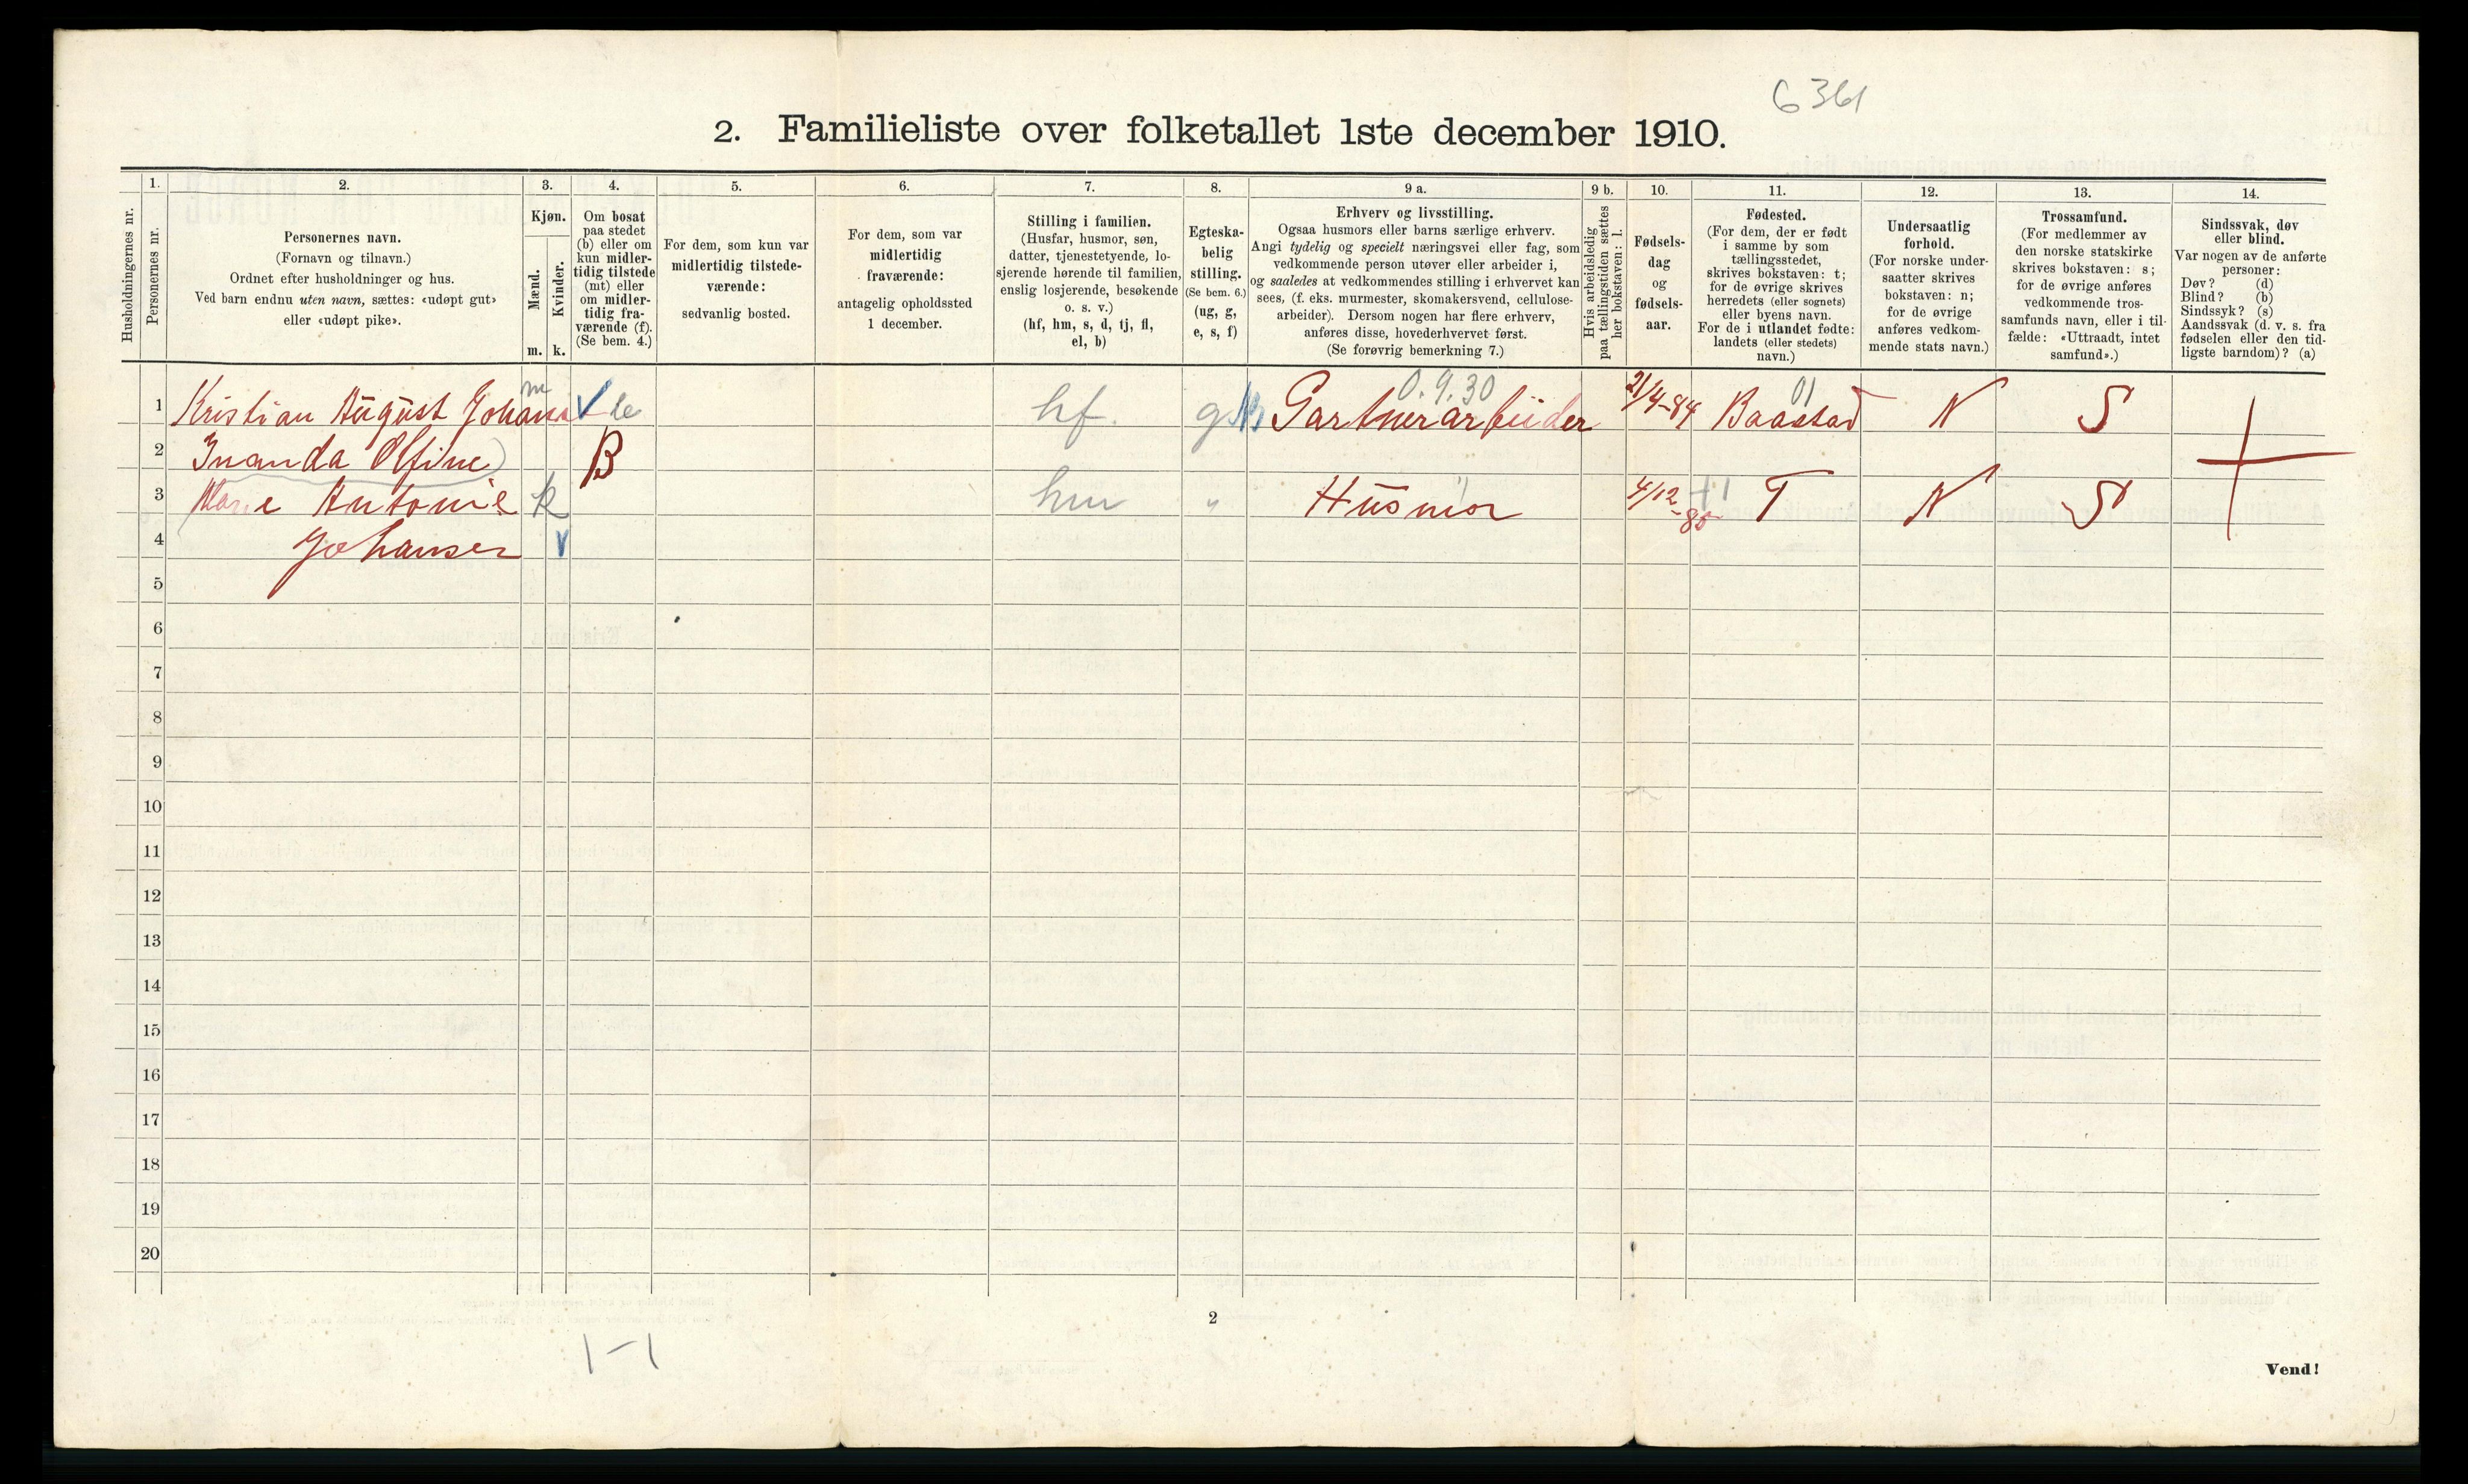 6361
2. Familieliste over folketallet 1ste december 1910.
1. 2. 3. 4. 5. 6. 7. 8. 9 a. 9 b. 10. 11. 12. 13. 14.
Husholdningernes nr.
Personernes nr.
Personernes navn.
(Fornavn og tilnavn.)
Ordnet efter husholdninger og hus.
Ved barn endnu uten navn, sættes: «udøpt gut»
eller «udøpt pike».
Kjøn.
Mænd.
Kvinder.
m. k.
Om bosat
paa stedet
(b) eller om
kun midler-
tidig tilstede
(mt) eller
om midler-
tidig fra-
værende (f).
(Se bem. 4.)
For dem, som kun var
midlertidig tilstede-
værende:
sedvanlig bosted.
For dem, som var
midlertidig
fraværende:
antagelig opholdssted
1 december.
Stilling i familien.
(Husfar, husmor, søn,
datter, tjenestetyende, lo-
sjerende hørende til familien,
enslig losjerende, besøkende
o. s. v.)
(hf, hm, s, d, tj, fl,
el, b)
Egteska-
belig
stilling.
(Se bem. 6.)
(ug, g,
e, s, f)
Erhverv og livsstilling.
Ogsaa husmors eller barns særlige erhverv.
Angi tydelig og specielt næringsvei eller fag, som
vedkommende person utøver eller arbeider i,
og saaledes at vedkommendes stilling i erhvervet kan
sees, (f. eks. murmester, skomakersvend, cellulose-
arbeider). Dersom nogen har flere erhverv,
anføres disse, hovederhvervet først.
(Se forøvrig bemerkning 7.)
Hvis arbeidsledig
paa tællingstiden sættes
her bokstaven: l.
Fødsels-
dag
og
fødsels-
aar.
Fødested.
(For dem, der er født
i samme by som
tællingsstedet,
skrives bokstaven: t;
for de øvrige skrives
herredets (eller sognets)
eller byens navn.
For de i utlandet fødte:
landets (eller stedets)
navn.)
Undersaatlig
forhold.
(For norske under-
saatter skrives
bokstaven: n;
for de øvrige
anføres vedkom-
mende stats navn.)
Trossamfund.
(For medlemmer av
den norske statskirke
skrives bokstaven: s;
for de øvrige anføres
vedkommende tros-
samfunds navn, eller i til-
fælde: «Uttraadt, intet
samfund».)
Sindssvak, døv
eller blind.
Var nogen av de anførte
personer:
Døv? (d)
Blind? (b)
Sindssyk? (s)
Aandssvak (d. v. s. fra
fødselen eller den tid-
ligste barndom)? (a)
m 0.9.30 01
1 Kristian August hf. g Gartnerarbeider 21/4-84 Baastad N S
2 Olfine) B
3 Marie Antonie k hm " Husmor 4/12 -85 T N S
4 Johansen
5
6
7
8
9
10
11
12
13
14
15
16
17
18
19
20
2
1-1
Vend!